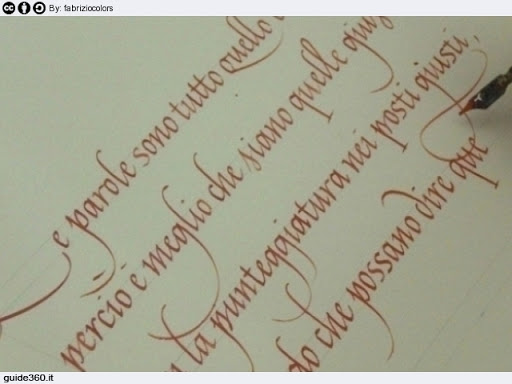 By: fabriziocolors
e parole sono tutto quello
perciò è meglio che siano quelle giu
la punteggiatura nei posti giusti,
do che possano dire que
guide360.it